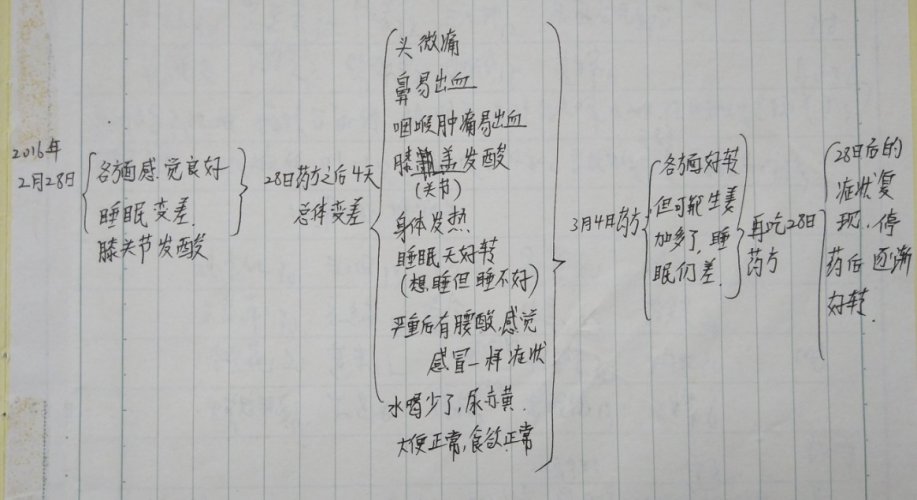 2016年
2月28日
各方面感觉良好
睡眠变差.
膝关节发酸
28日药方之后4天
总体变差
头微痛
鼻易出血
咽喉肿痛易出血
膝盖发酸
(关节)
身体发热
睡眠无好转
(想睡但睡不好)
严重后有腰酸,感觉
感冒一样症状
水喝少了,尿亦黄.
大便正常,食欲正常
3月4日药方
各方面好转
但可能生姜
加多了,睡
眠仍差.
再吃28日
药方
28日后的
症状复
现,停
药后逐渐
好转.